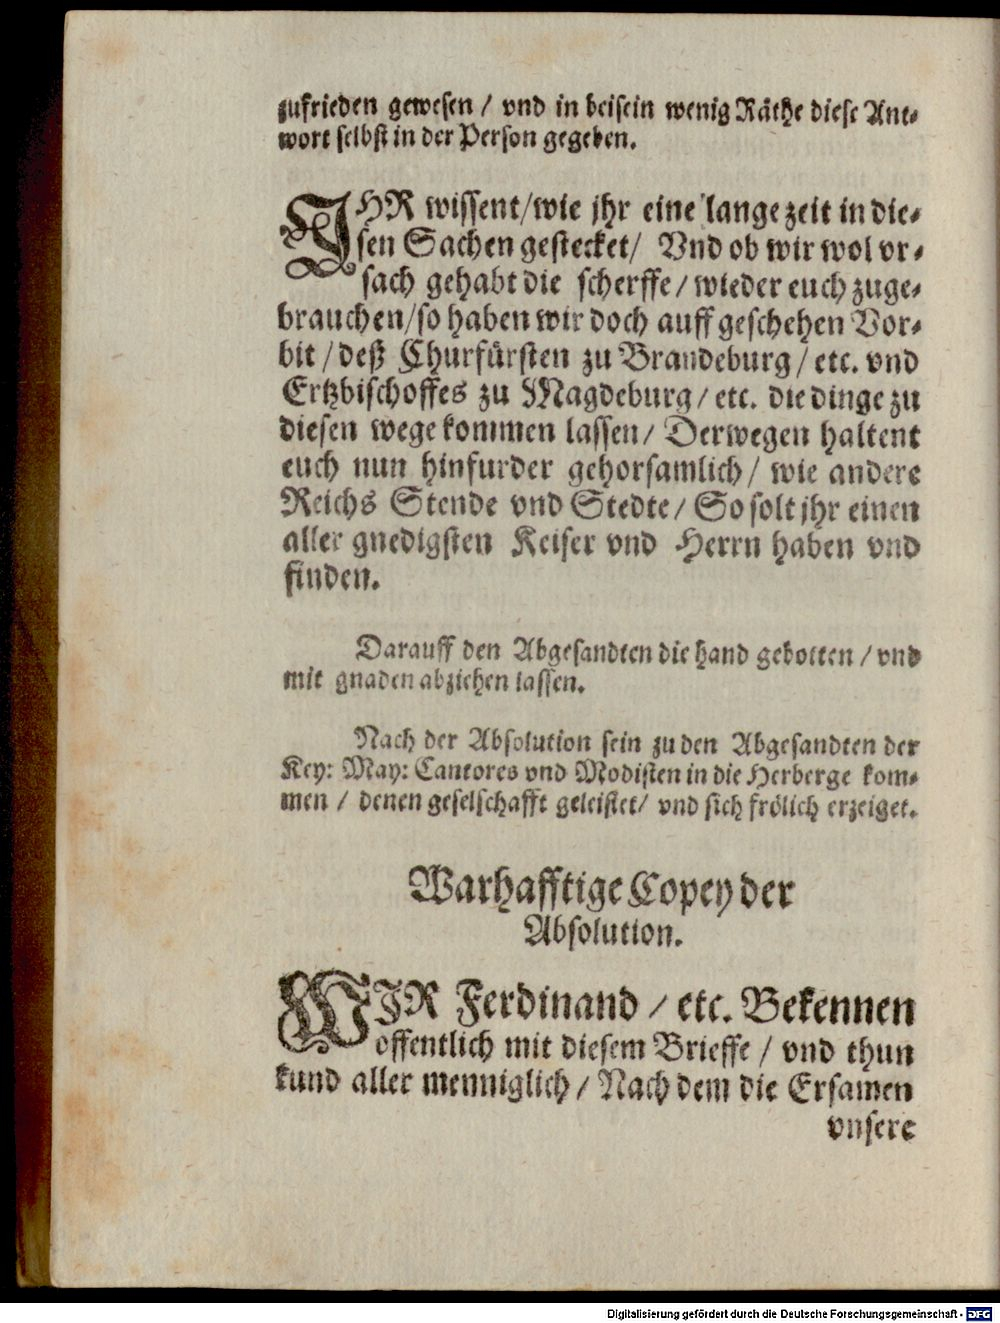 zufrieden gewesen / vnd in beisein wenig Räthe diese Ant-
wort selbst in der Person gegeben.
IHR wissent/wie jhr eine lange zeit in die-
sen Sachen gestecket/ Vnd ob wir wol vr-
sach gehabt die scherffe / wieder euch zuge-
brauchen/so haben wir doch auff geschehen Vor-
bit / deß Churfürsten zu Brandeburg / etc. vnd
Ertzbischoffes zu Magdeburg / etc. die dinge zu
diesen wege kommen lassen / Derwegen haltent
euch nun hinfurder gehorsamlich / wie andere
Reichs Stende vnd Stedte / So solt jhr einen
aller gnedigsten Keiser vnd Herrn haben vnd
finden.
Darauff den Abgesandten die hand gebotten / vnd
mit gnaden abziehen lassen.
Nach der Absolution sein zu den Abgesandten der
Key: May: Cantores vnd Modisten in die Herberge kom-
men / denen geselschafft geleistet/ vnd sich frölich erzeiget.
Warhafftige Copey der
Absolution.
WIR Ferdinand / etc. Bekennen
offentlich mit diesem Brieffe / vnd thun
kund aller menniglich / Nach dem die Ersamen
vnsere
Digitalisierung gefördert durch die Deutsche Forschungsgemeinschaft - DFG